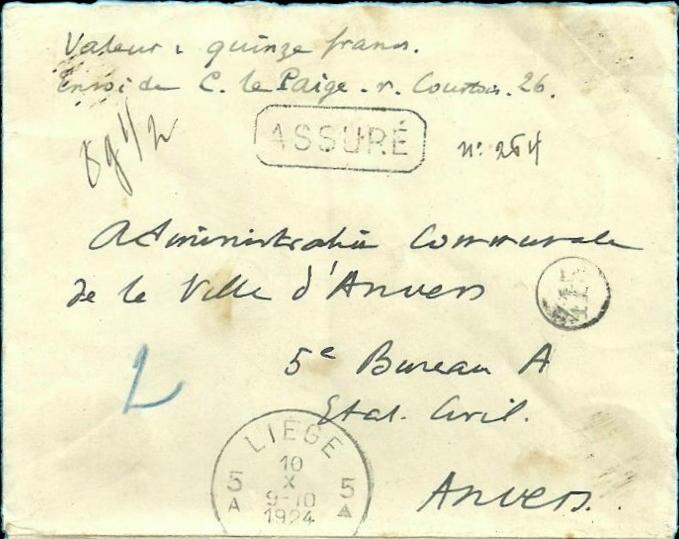 Valeur : quinze francs.
Envoi de C. le Paige - r. Courtois. 26.
8g 1/2
ASSURÉ
n: 264
Administration Communale
de la Ville d'Anvers
5e Bureau A
Etat. Civil.
Anvers.
LIÈGE
5 5
A A
10
X
9-10
1924